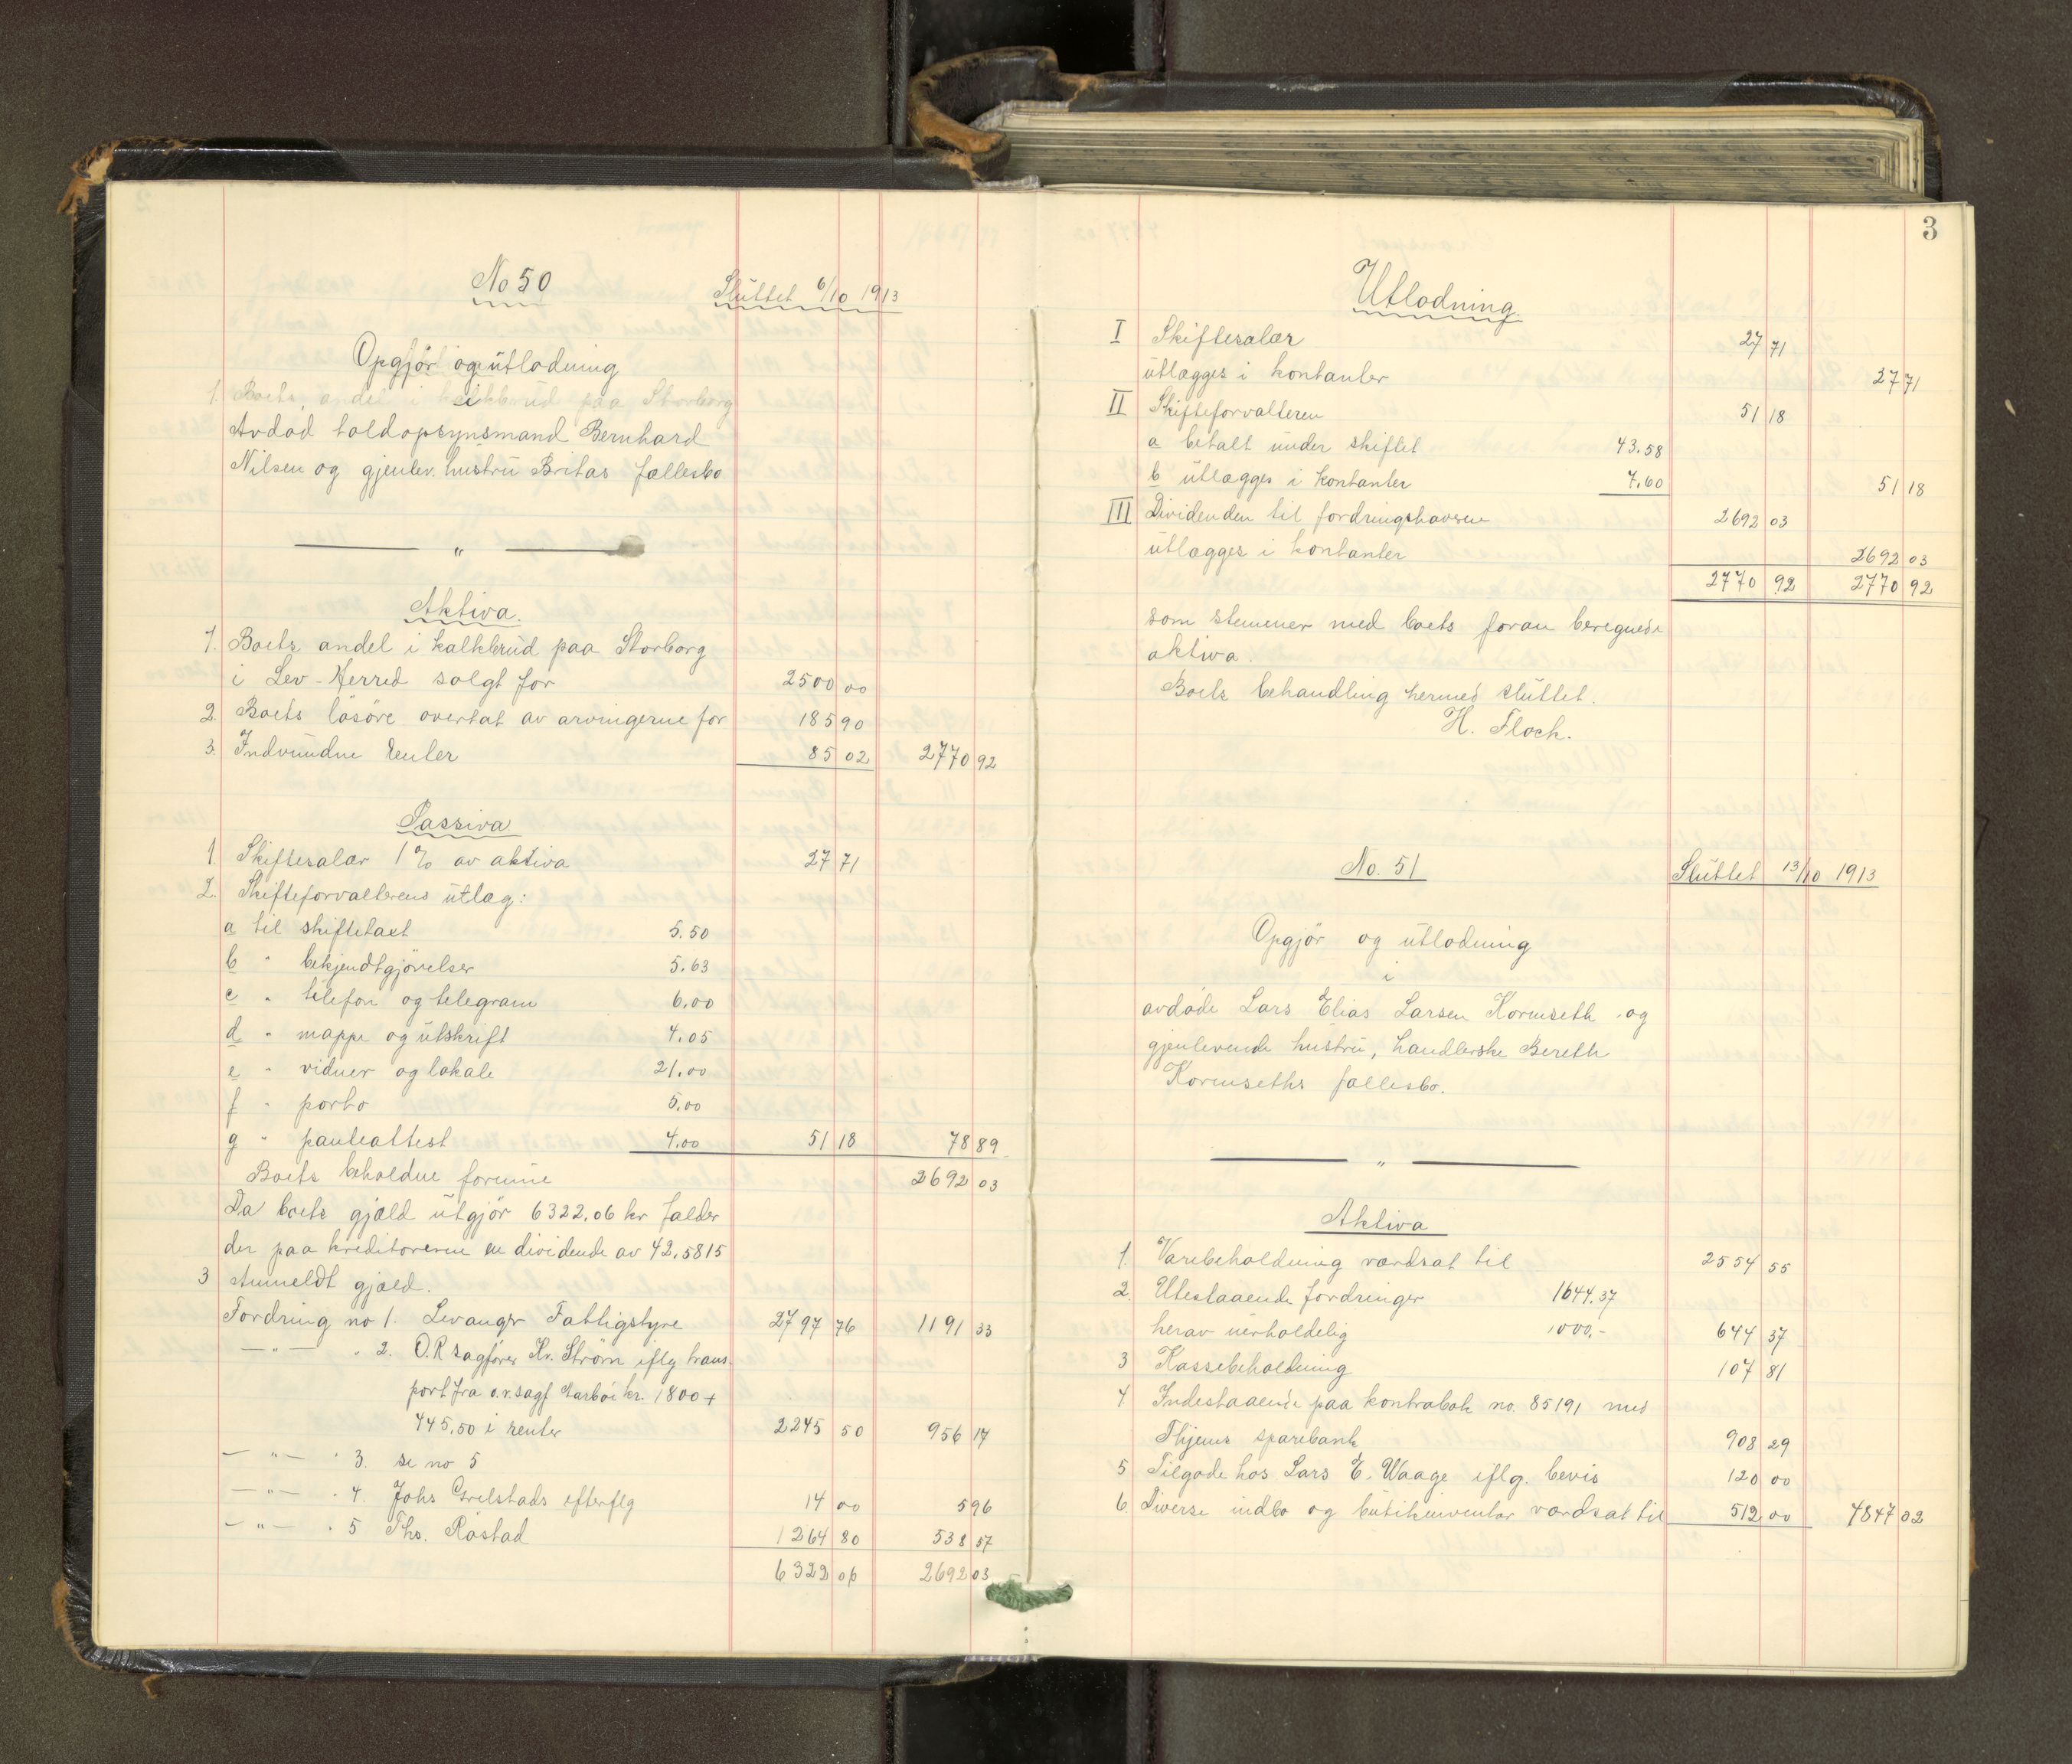 No 50 Sluttet 6/10 1913
Opgjör og utlodning
1. Boets andel i kalkbrud paa Storborg
i
Avdöd toldopsynsmand Bernhard
Nilsen og gjenlev. hustru Britas fællesbo
— " —
Aktiva.
1. Boets andel i kalkbrud paa Storborg
i Lev-Herred solgt for 2500 00
2. Boets lösöre overtat av arvingerne for 185 90
3. Indvundne renter 85 02 2770 92
Passiva
1 Skiftesalær 1 % av aktiva 27 71
2. Skifteforvalterens utlæg:
a til skiftetaxt 5.50
b " bekjendtgjörelser 5.63
c " telefon og telegram 6.00
d " mappe og utskrift 4.05
e " vidner og lokale 21.00
f " porto 5.00
g " panteattest 4.00 51 18 78 89
Boets beholdne formue 2692 03
Da boets gjæld utgjör 6322,06 kr falder
der paa kreditorerne en dividende av 42,5815
3 Anmeldt gjæld.
Fordring no 1. Levanger Fattigstyre 2797 76 1191 33
— " — " 2. O.R sagförer Kr. Ström iflg trans-
port fra o.r.sagf Aarböi kr. 1800 +
445,50 i renter 2245 50 956 17
— " — " 3. se no 5
— " — " 4. Johs Grelstads efterflg 14 00 5 96
— " — " 5 Ths. Röstad 1264 80 538 57
6322 06 2692 03
3
Utlodning.
I Skiftesalær 27 71
utlægges i kontanter 27 71
II Skifteforvalteren 51 18
a betalt under skiftet 43.58
b utlægges i kontanter 7.60 51 18
III Dividenden til fordringshavere 2692 03
utlægges i kontanter 2692 03
2770 92 2770 92
som stemmer med boets foran beregnede
aktiva.
Boets behandling hermed sluttet.
H. Floch.
No. 51 Sluttet 13/10 1913
Opgjör og utlodning
i
avdöde Lars Elias Larsen Kormseth og
gjenlevende hustru, handlerske Bereth
Kormseths fællesbo.
— " —
Aktiva
1. Varebeholdning værdsat til 2554 55
2. Utestaaende fordringer 1644.37
herav uerholdelig 1000,- 644 37
3 Kassebeholdning 107 81
4 Indestaaende paa kontrabok no. 85191 med
Thjems sparebank 908 29
5 Tilgode hos Lars E. Waage iflg. bevis 120 00
6. Diverse indbo og butikinventar værdsat til 512 00 4847 02